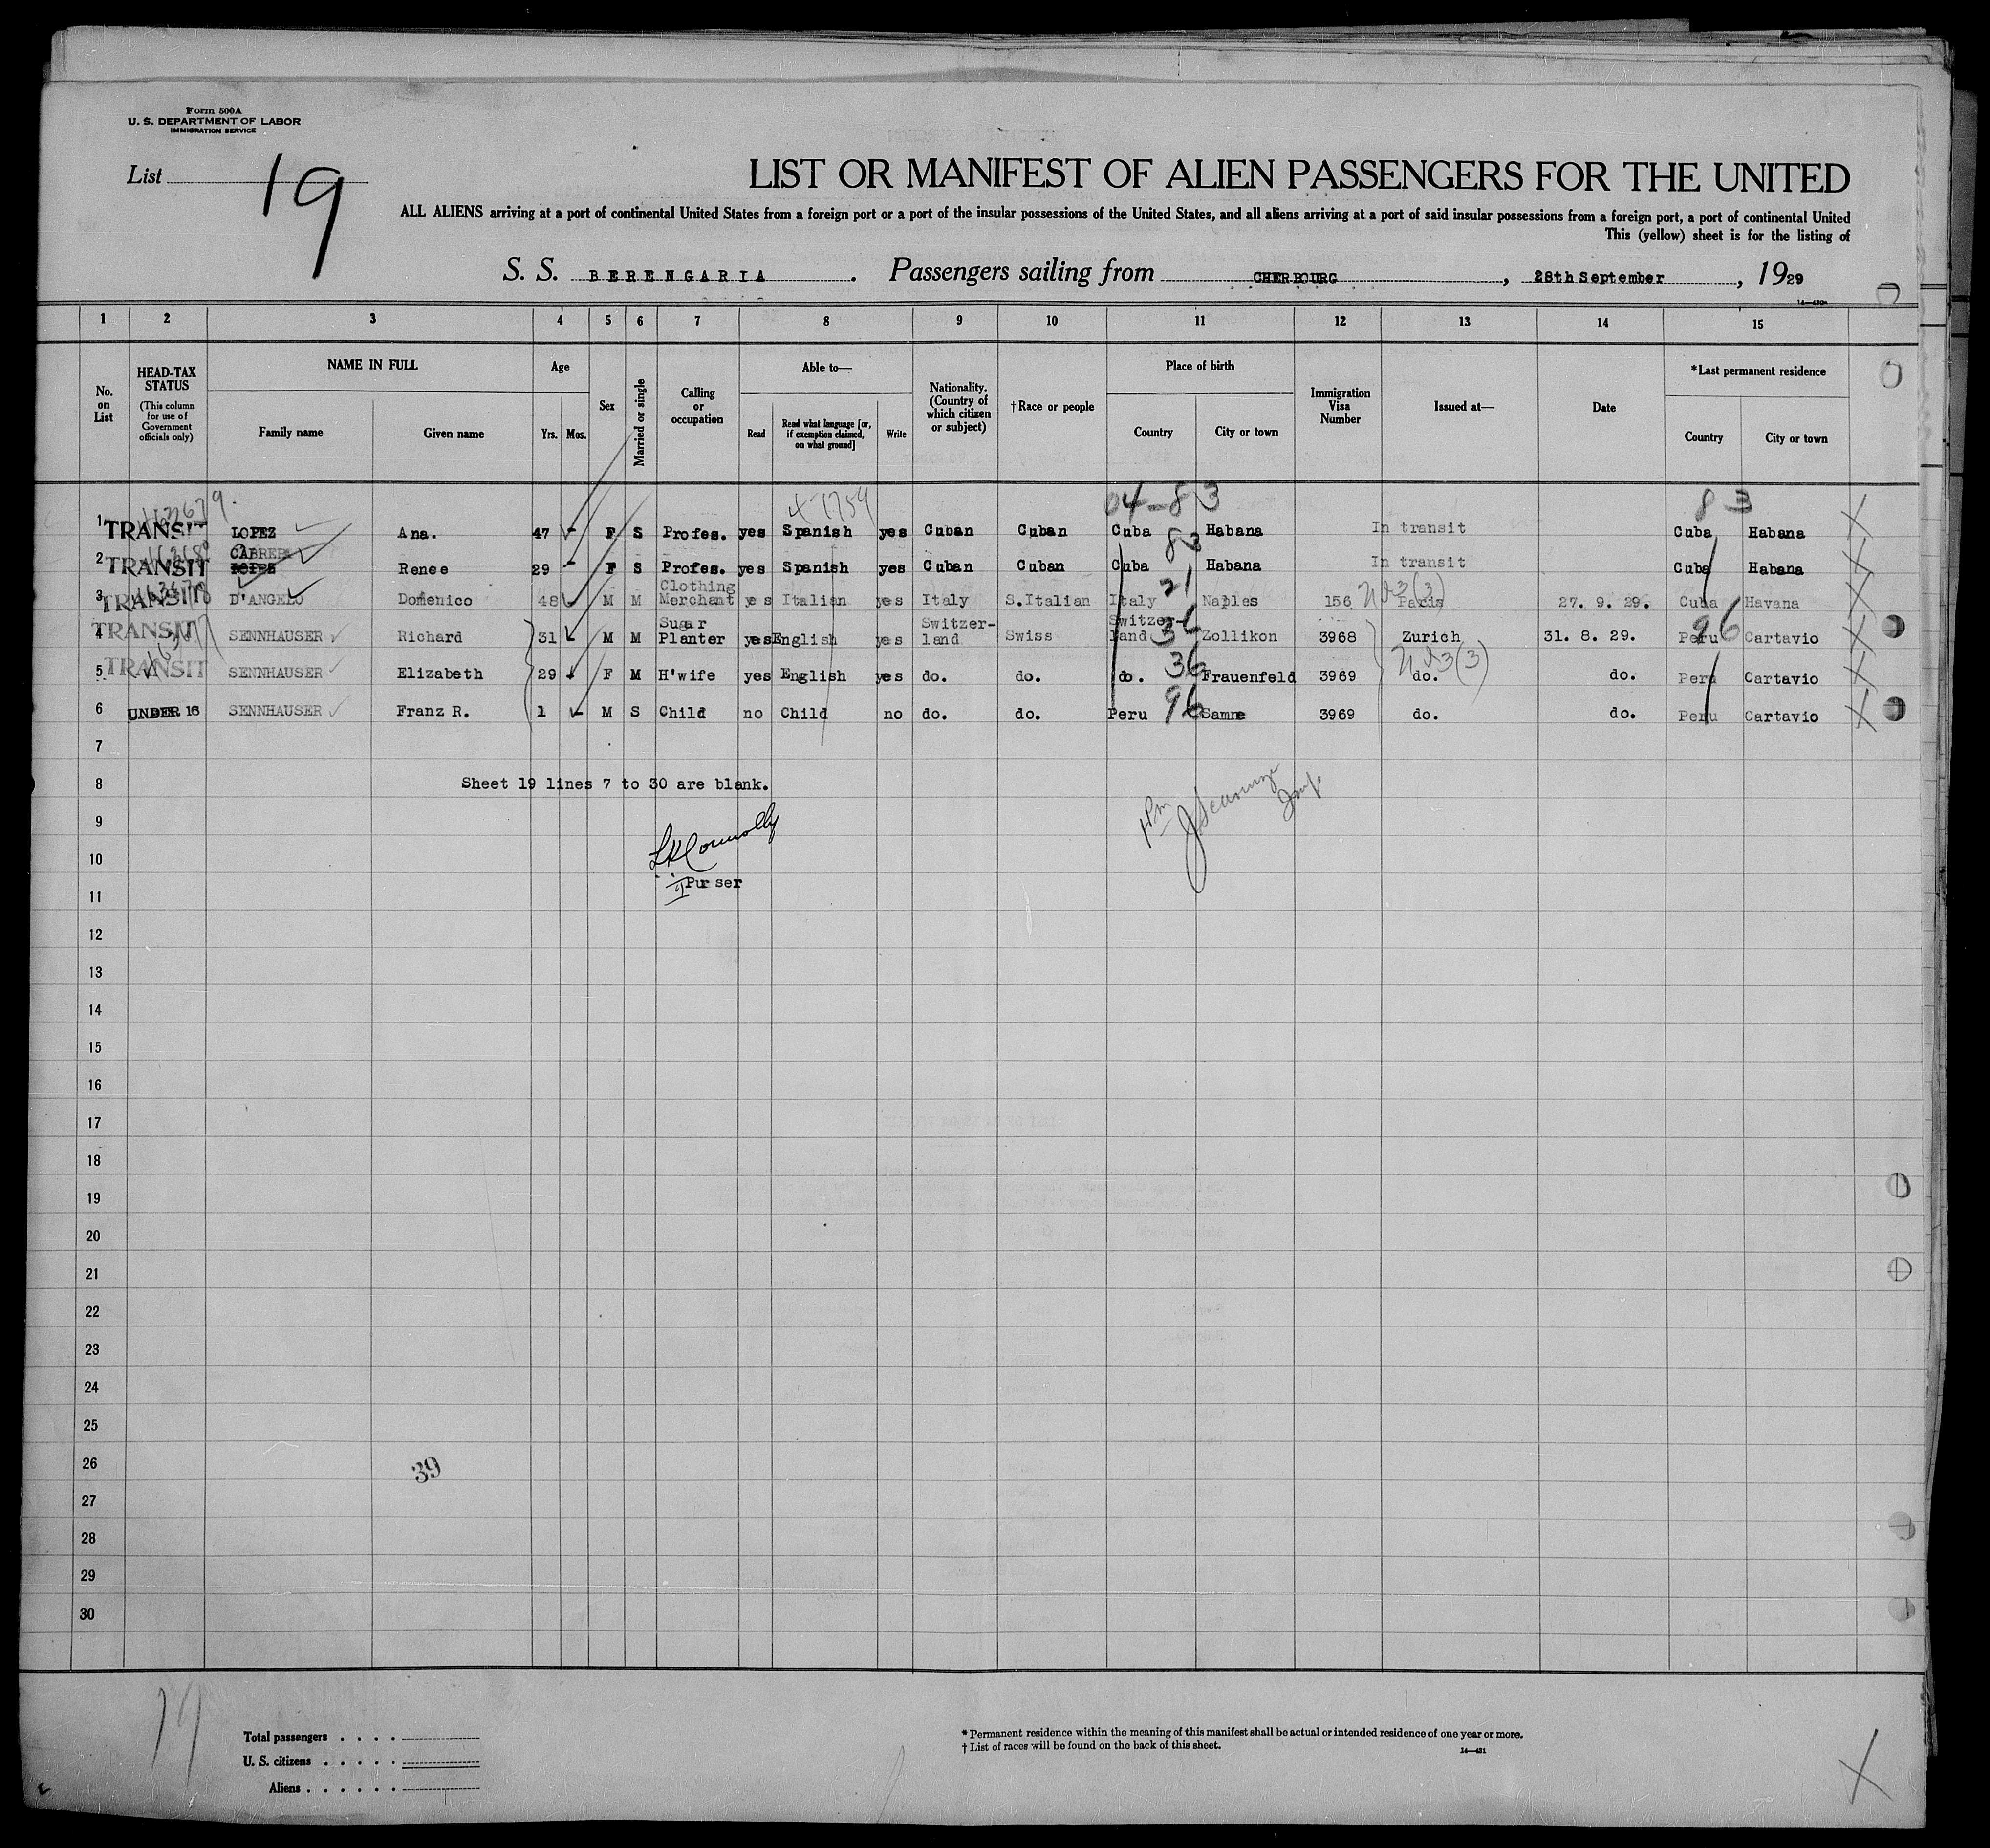 Form 500A
U. S. DEPARTMENT OF LABOR
IMMIGRATION SERVICE
List 19
LIST OR MANIFEST OF ALIEN PASSENGERS FOR THE UNITED
ALL ALIENS arriving at a port of continental United States from a foreign port or a port of the insular possessions of the United States, and all aliens arriving at a port of said insular possessions from a foreign port, a port of continental United
This (yellow) sheet is for the listing of
S. S. BERENGARIA. Passengers sailing from CHERBOURG, 28th September, 1929
1 2 3 4 5 6 7 8 9 10 11 12 13 14 15
No. on List
HEAD-TAX STATUS
(This column for use of Government officials only)
NAME IN FULL
Family name
Given name
Age
Yrs.
Mos.
Sex
Married or single
Calling or occupation
Able to—
Read
Read what language [or, if exemption claimed, on what ground]
Write
Nationality. (Country of which citizen or subject)
†Race or people
Place of birth
Country
City or town
Immigration Visa Number
Issued at—
Date
*Last permanent residence
Country
City or town
04-83 83
1 TRANSIT LOPEZ Ana. 47 F S Profes. yes Spanish yes Cuban Cuban Cuba Habana In transit Cuba Habana
2 TRANSIT CABRERA Renee 29 F S Profes. yes Spanish yes Cuban Cuban Cuba 83 Habana In transit Cuba Habana
3 TRANSIT D'ANGELO Domenico 48 M M Clothing Merchant yes Italian yes Italy S.Italian Italy 21 Naples 156 Paris 27. 9. 29. Cuba Havana
4 TRANSIT SENNHAUSER Richard 31 M M Sugar Planter yes English yes Switzer-land Swiss Switzer-land 36 Zollikon 3968 Zurich 31. 8. 29. Peru 96 Cartavio
5 TRANSIT SENNHAUSER Elizabeth 29 F M H'wife yes English yes do. do. do. 36 Frauenfeld 3969 do. do. Peru Cartavio
6 UNDER 16 SENNHAUSER Franz R. 1 M S Child no Child no do. do. Peru 96 Samne 3969 do. do. Peru Cartavio
7
8 Sheet 19 lines 7 to 30 are blank.
9
10
11 II Purser
12
13
14
15
16
17
18
19
20
21
22
23
24
25
26
39
27
28
29
30
19
Total passengers
U. S. citizens
Aliens
* Permanent residence within the meaning of this manifest shall be actual or intended residence of one year or more.
† List of races will be found on the back of this sheet.
14—421